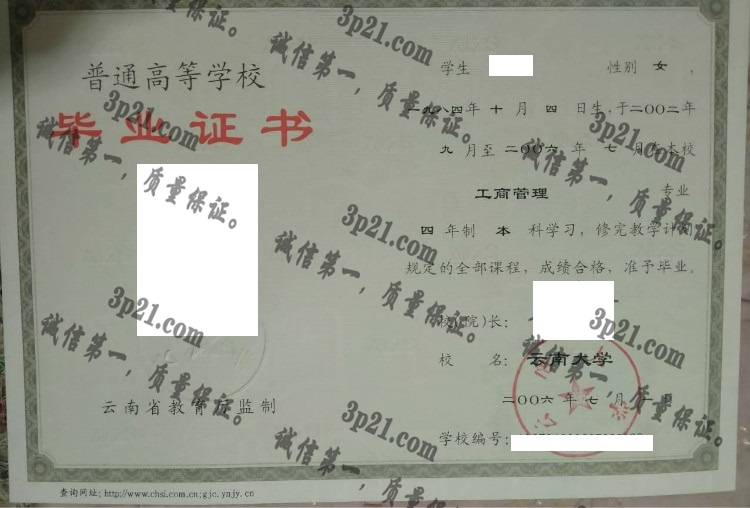 普通高等学校
毕业证书
云南省教育厅监制
查询网址:http://www.chsi.com.cn;gjc.ynjy.cn
学生 性别 女 ,
一九八四年 十 月 四 日生,于二〇〇二年
九 月至 二〇〇六 年 七 月在本校
工商管理 专业
四 年制 本 科学习,修完教学计划
规定的全部课程,成绩合格,准予毕业。
校(院)长:
校 名: 云南大学
二〇〇六年 七 月 一 日
学校编号:
3p21.com
诚信第一,质量保证。
3p21.com
诚信第一,质量保证。
3p21.com
诚信第一,质量保证。
3p21.com
诚信第一,质量保证。
3p21.com
诚信第一,质量保证。
3p21.com
诚信第一,质量保证。
3p21.com
诚信第一,质量保证。
3p21.com
诚信第一,质量保证。